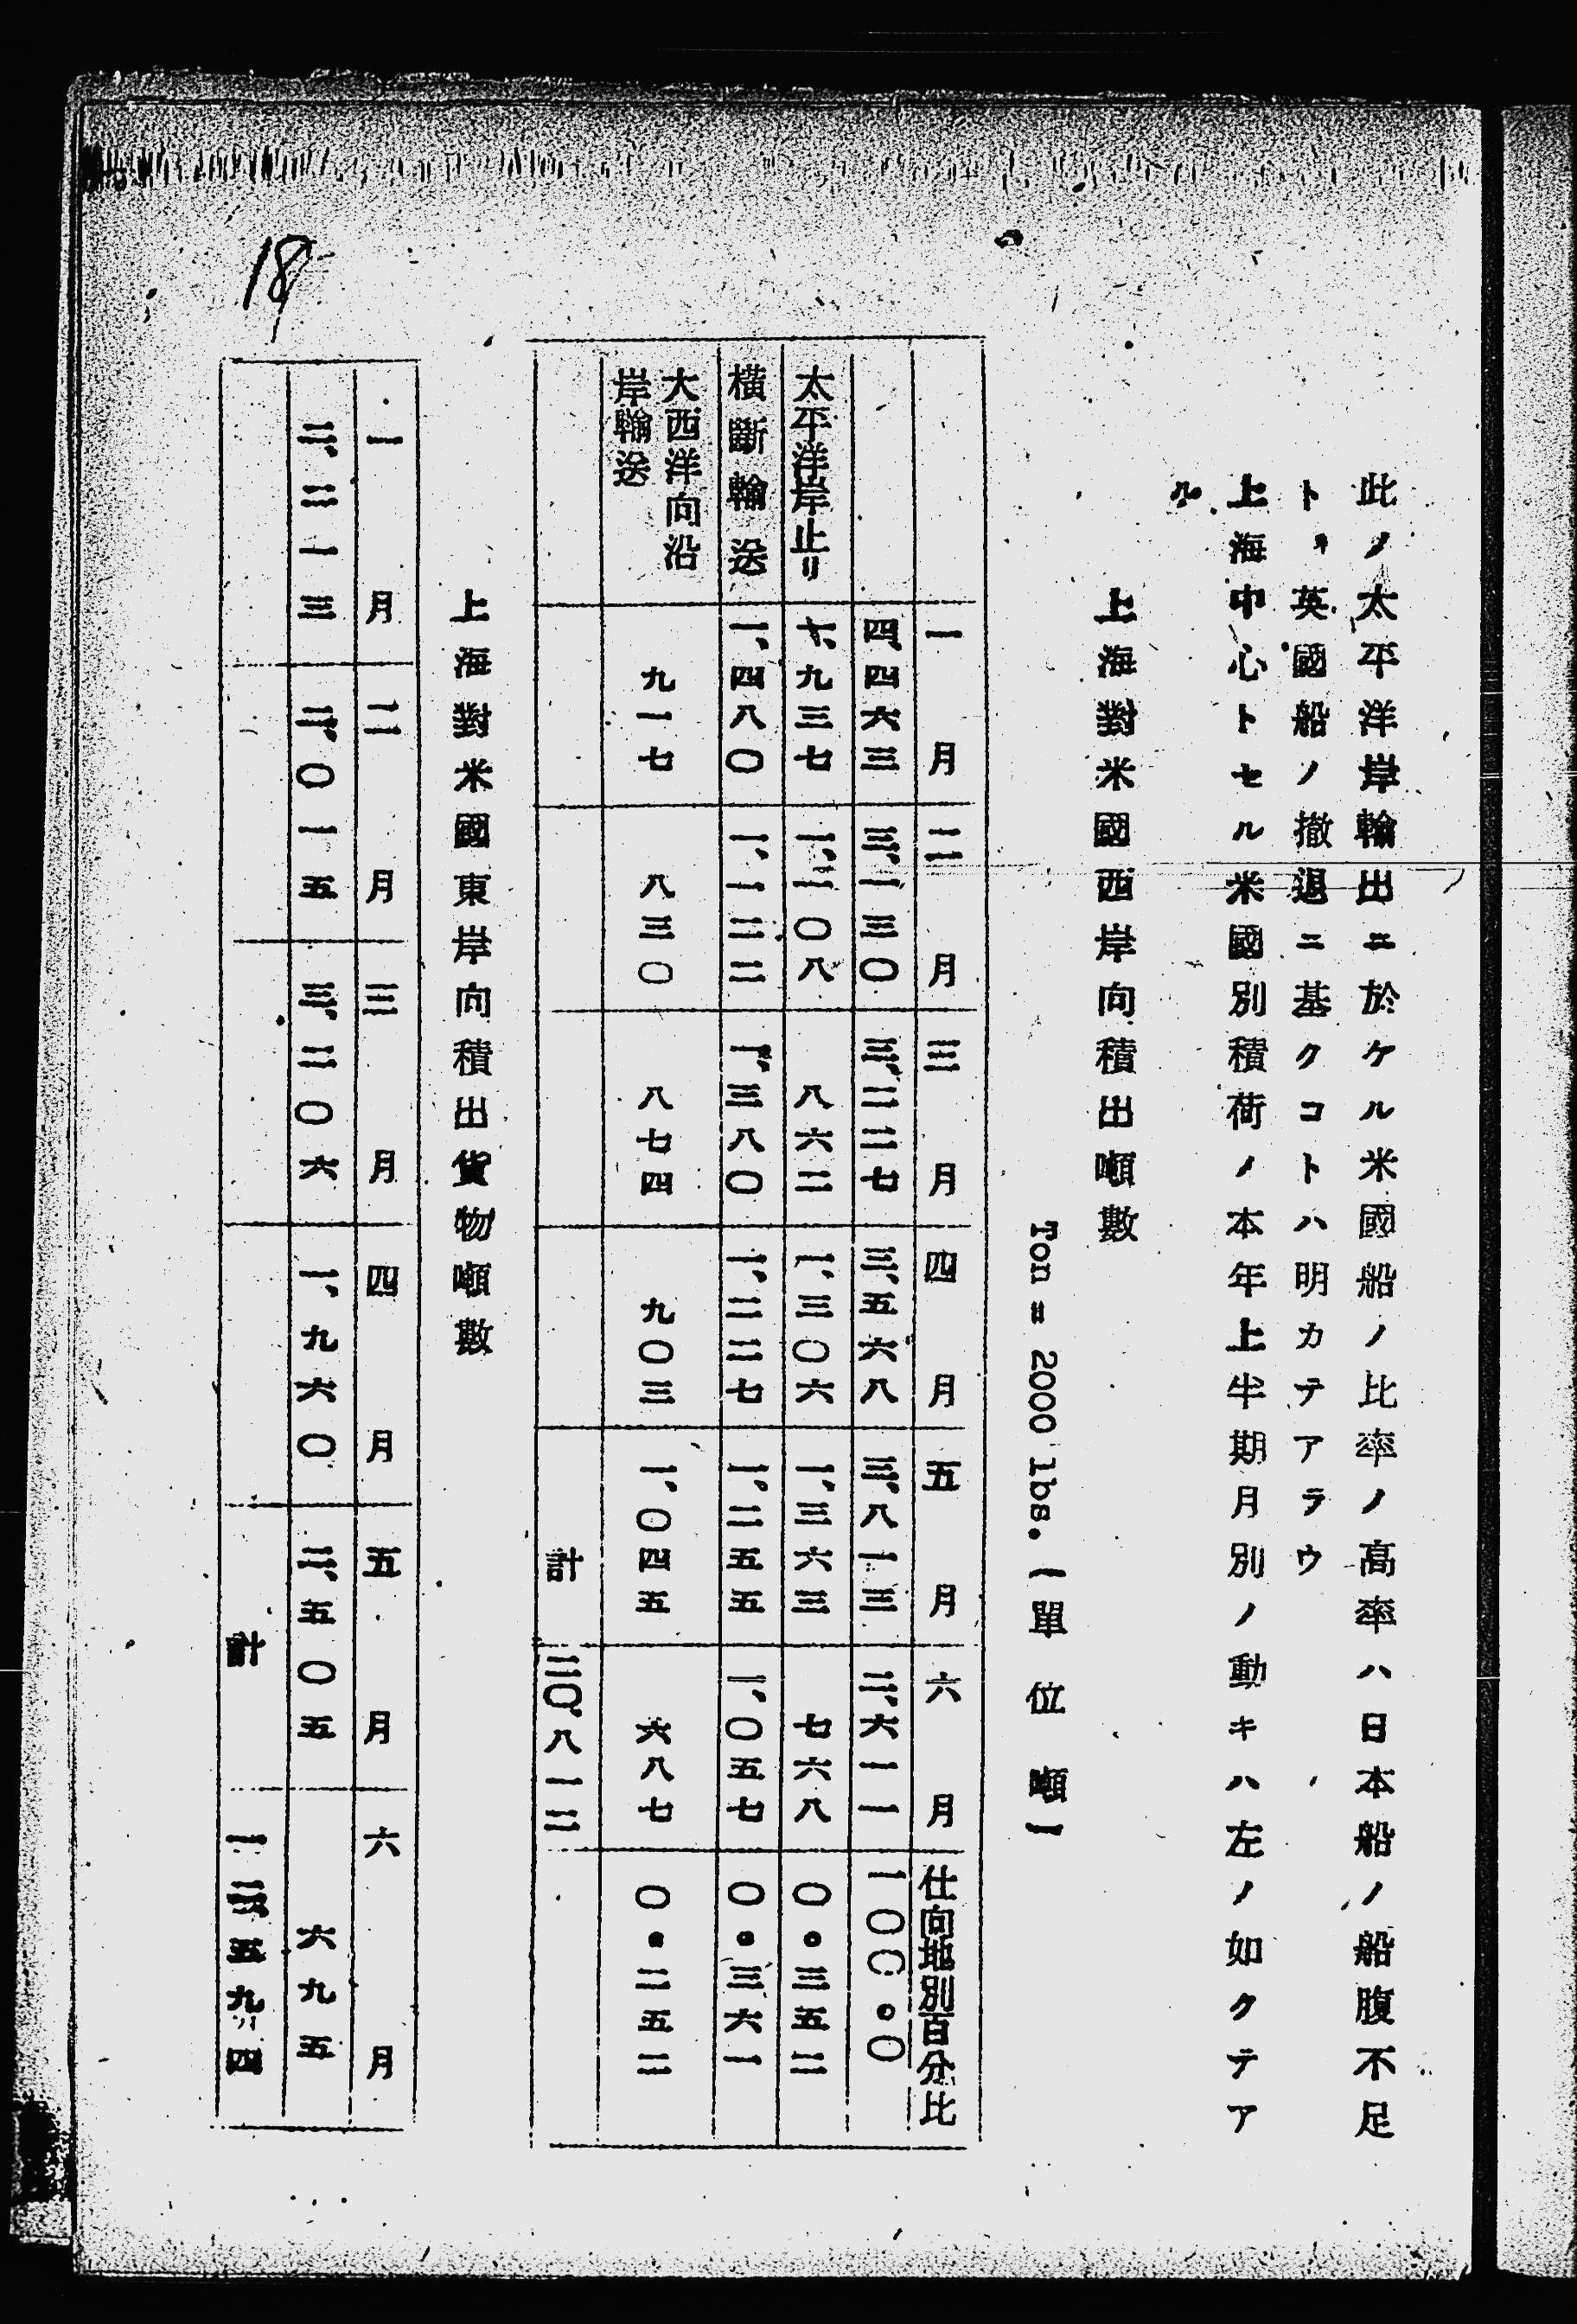 此ノ太平洋岸輸出ニ於ケル米國船ノ比率ノ高率ハ日本船ノ船腹不足
トヰ英國船ノ撤退ニ基クコトハ明カテアラウ
上海中心トセル米國別積荷ノ本年上半期月別ノ動キハ左ノ如クテア
ル
上海對米國西岸向積出噸數
Ton = 2000 lbs. (單位噸)
一月 二月 三月 四月 五月 六月 仕向地別百分比
四、四六三 三、一三〇 三、二二七 三、五六八 三、八一三 二、六一一 一〇〇.〇
太平洋岸止リ 七、九三七 一、二〇八 八六二 一、三〇六 一、三六三 七六八 〇.三五二
橫斷輸送 一、四八〇 一、一二二 一、三八〇 一、二二七 一、二五五 一、〇五七 〇.三六一
大西洋向沿岸輸送 九一七 八三〇 八七四 九〇三 一、〇四五 六八七 〇.二五二
計 二〇、八一二
上海對米國東岸向積出貨物噸數
一月 二月 三月 四月 五月 六月
二、二一三 二、〇一五 三、二〇六 一、九六〇 二、五〇五 六九五
計 一二、五九四
18